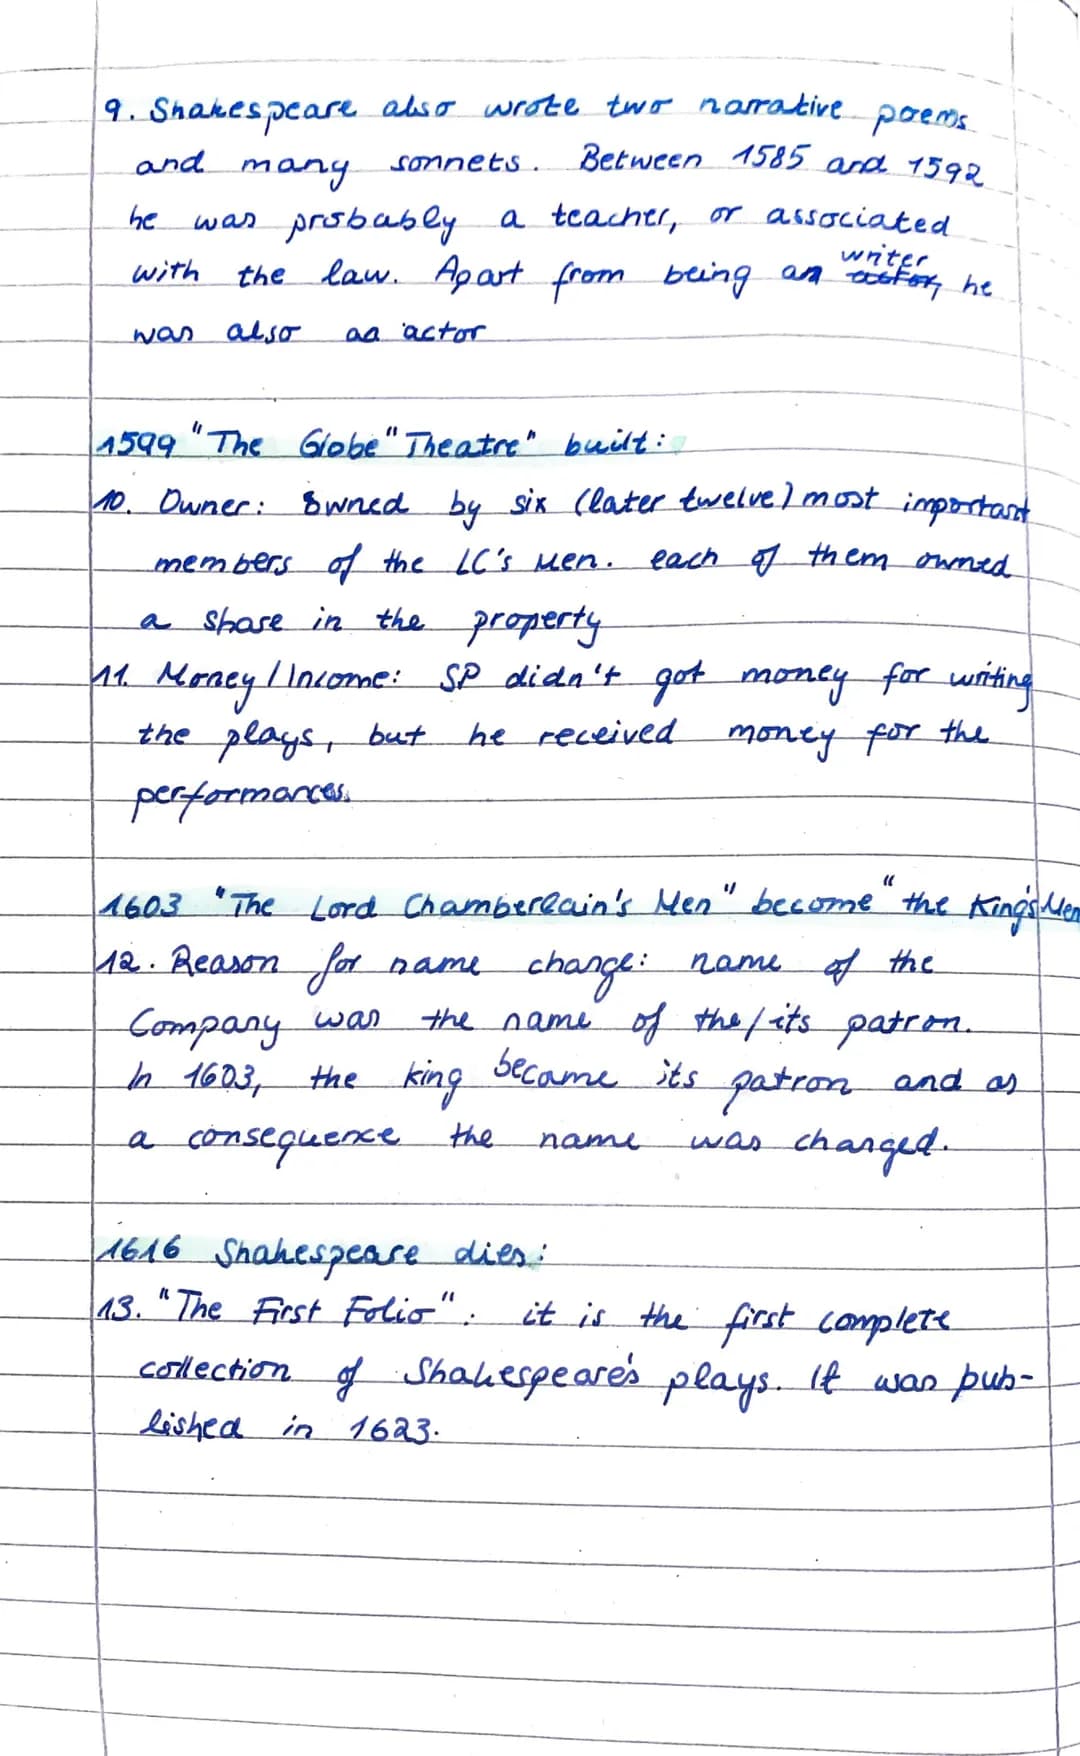 9. Shakespeare also wrote two narrative poems
and many sonnets. Between 1585 and 1592
he was probably a teacher, or associated
with the law. Apart from being an writer he
was also an actor
1599 "The Globe" Theatre" built:
10. Owner: owned by six (later twelve) most important
members of the LC's Men. each of them owned
a share in the property
11. Money/Income: SP didn't got money for writing
the plays, but he received money for the
performances.
1603 "The Lord Chamberlain's Men" become "the King's Men
12. Reason for name change: name of the
Company was the name of the/its patron.
In 1603, the king became its patron and as
a consequence the name was changed.
1616 Shakespeare dies:
13. "The First Folio": it is the first complete
collection of Shakespeare's plays. It was pub-
lished in 1623.